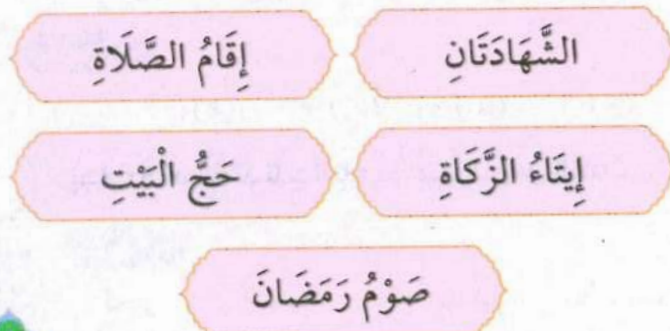 الشَّهَادَتَانِ
إِقَامُ الصَّلَاةِ
إِيتَاءُ الزَّكَاةِ
حَجُّ الْبَيْتِ
صَوْمُ رَمَضَانَ